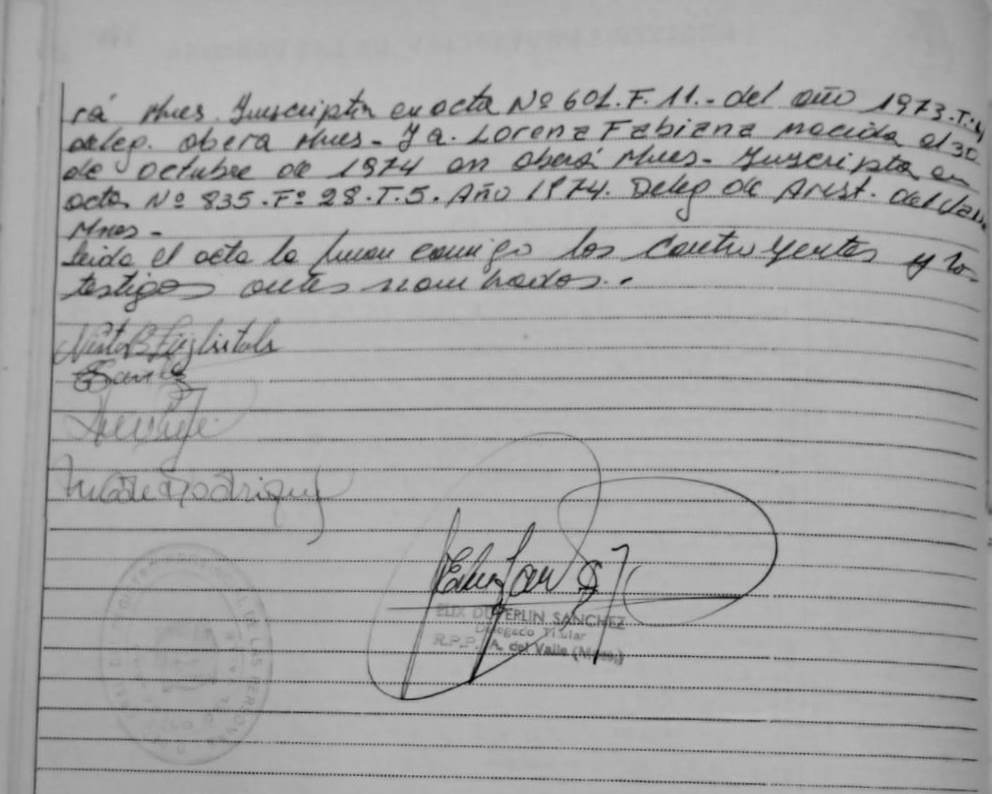 rá Mnes. Inscripta en acta Nº 601. F. 11.- del año 1973. T. 4
deleg. Oberá Mnes.- Y a. Lorena Fabiana nacida el 30
de octubre de 1974 en Oberá Mnes.- Inscripta en
acta Nº 835. Fº 28. T. 5. Año 1974. Deleg de Arist. del Valle
Mnes.-
Leida el acta la firman conmigo los contrayentes y los
testigos antes nombrados.-
ELIX DUPERLIN SANCHEZ
Delegado Titular
R.P.P. A. del Valle (Mnes.)